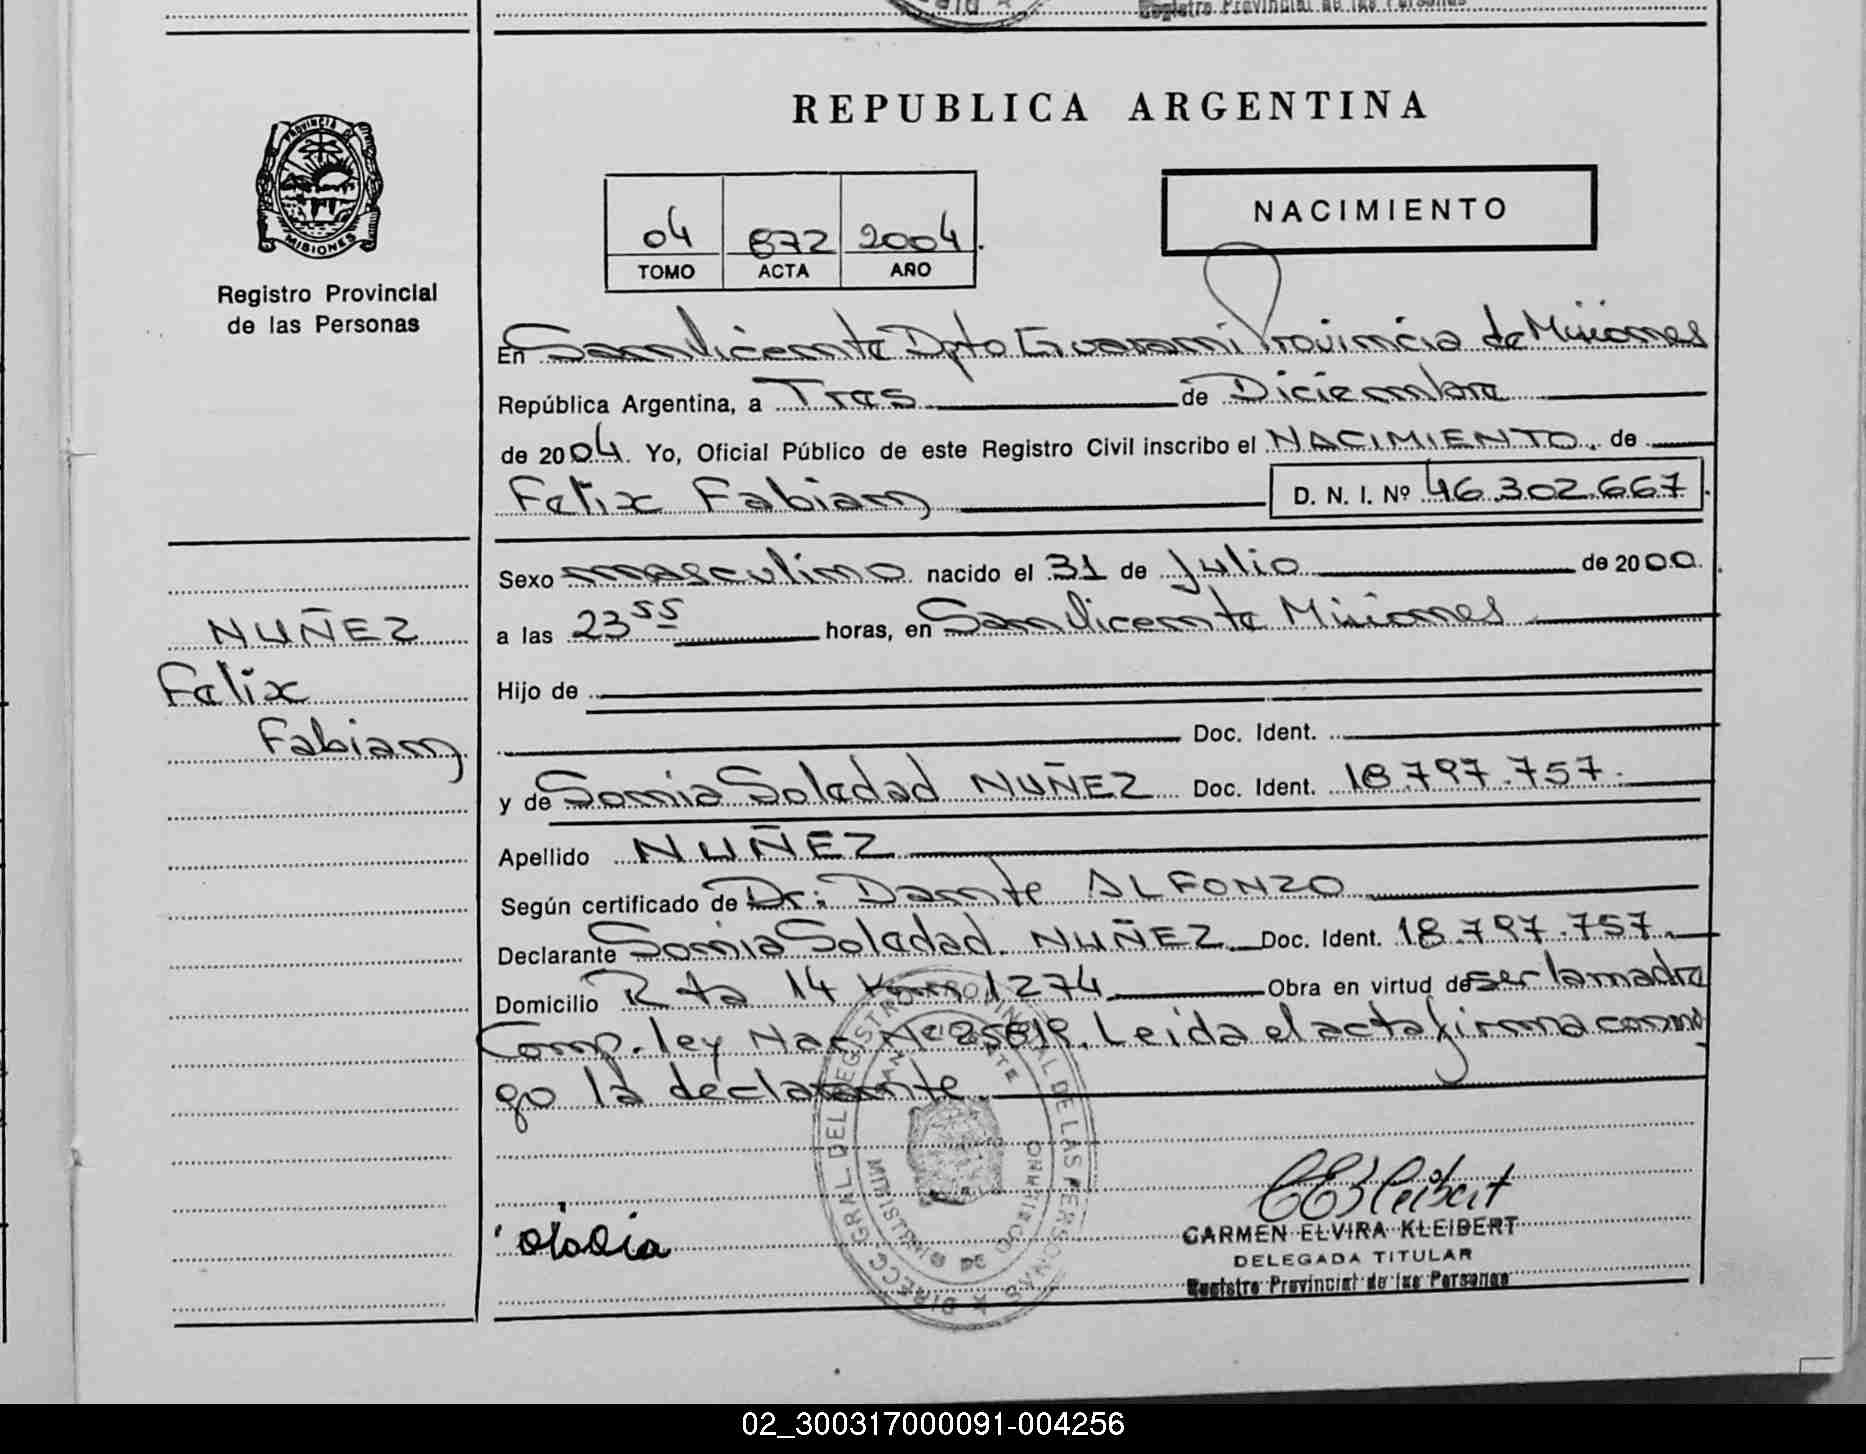 Registro Provincial de las Personas
REPUBLICA ARGENTINA
PROVINCIA DE
MISIONES
Registro Provincial
de las Personas
04 872 2004.
TOMO ACTA AÑO
NACIMIENTO
En San Vicente Dpto Guarani Provincia de Misiones
República Argentina, a Tres de Diciembre
de 2004. Yo, Oficial Público de este Registro Civil inscribo el NACIMIENTO. de
Felix Fabian D. N. I. Nº 46.302.667
Sexo masculino nacido el 31 de Julio de 2000.
NUÑEZ
Felix
Fabian
a las 23 55 horas, en San Vicente Misiones
Hijo de
Doc. Ident.
y de Sonia Soledad NUÑEZ Doc. Ident. 18.797.757.
Apellido NUÑEZ
Según certificado de Dr: Dante ALFONZO
Declarante Sonia Soledad NUÑEZ Doc. Ident. 18.797.757.
Domicilio Rta 14 Km 1274 Obra en virtud de ser la madre
Comp. ley Nac Nº 25819. Leida el acta firma conmi
go la declarante.
DIRECC. GRAL DEL REGISTRO PROVINCIAL DE LAS PERSONAS
MINISTERIO DE GOBIERNO
CARMEN ELVIRA KLEIBERT
DELEGADA TITULAR
Registro Provincial de las Personas
02_300317000091-004256